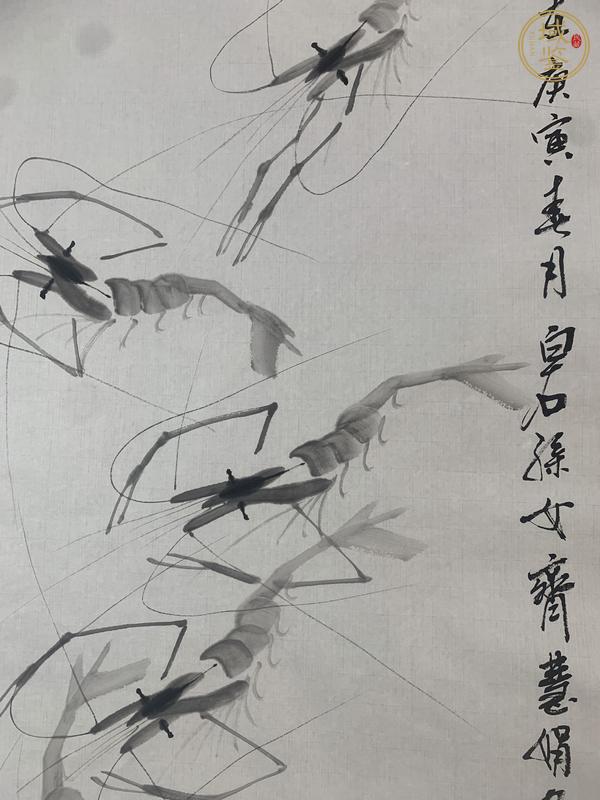 庚寅春月白石孫女齊慧娟
域鉴